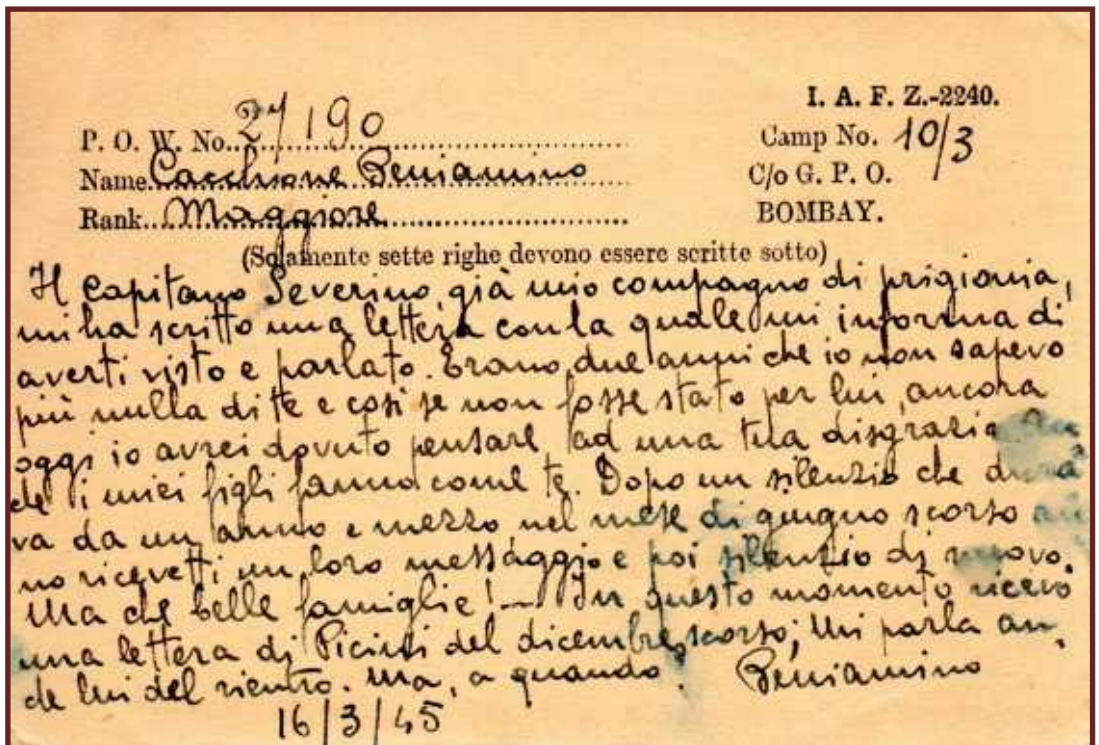 I. A. F. Z.-2240.
P. O. W. No. 27190
Camp No. 10/3
Name Cacchione Beniamino
C/o G. P. O.
Rank Maggiore
BOMBAY.
(Solamente sette righe devono essere scritte sotto)
Il Capitano Severino, già mio compagno di prigionia,
mi ha scritto una lettera con la quale mi informa di
averti visto e parlato. Erano due anni che io non sapevo
più nulla di te e così se non fosse stato per lui, ancora
oggi io avrei dovuto pensare ad una tua disgrazia. An
che i miei figli fanno come te. Dopo un silenzio che dura
va da un anno e mezzo nel mese di giugno scorso an
no ricevetti un loro messaggio e poi silenzio di nuovo.
Ma che belle famiglie! — In questo momento ricevo
una lettera di del dicembre scorso; Mi parla an
che lui del rientro. Ma, a quando? Beniamino
16/3/45